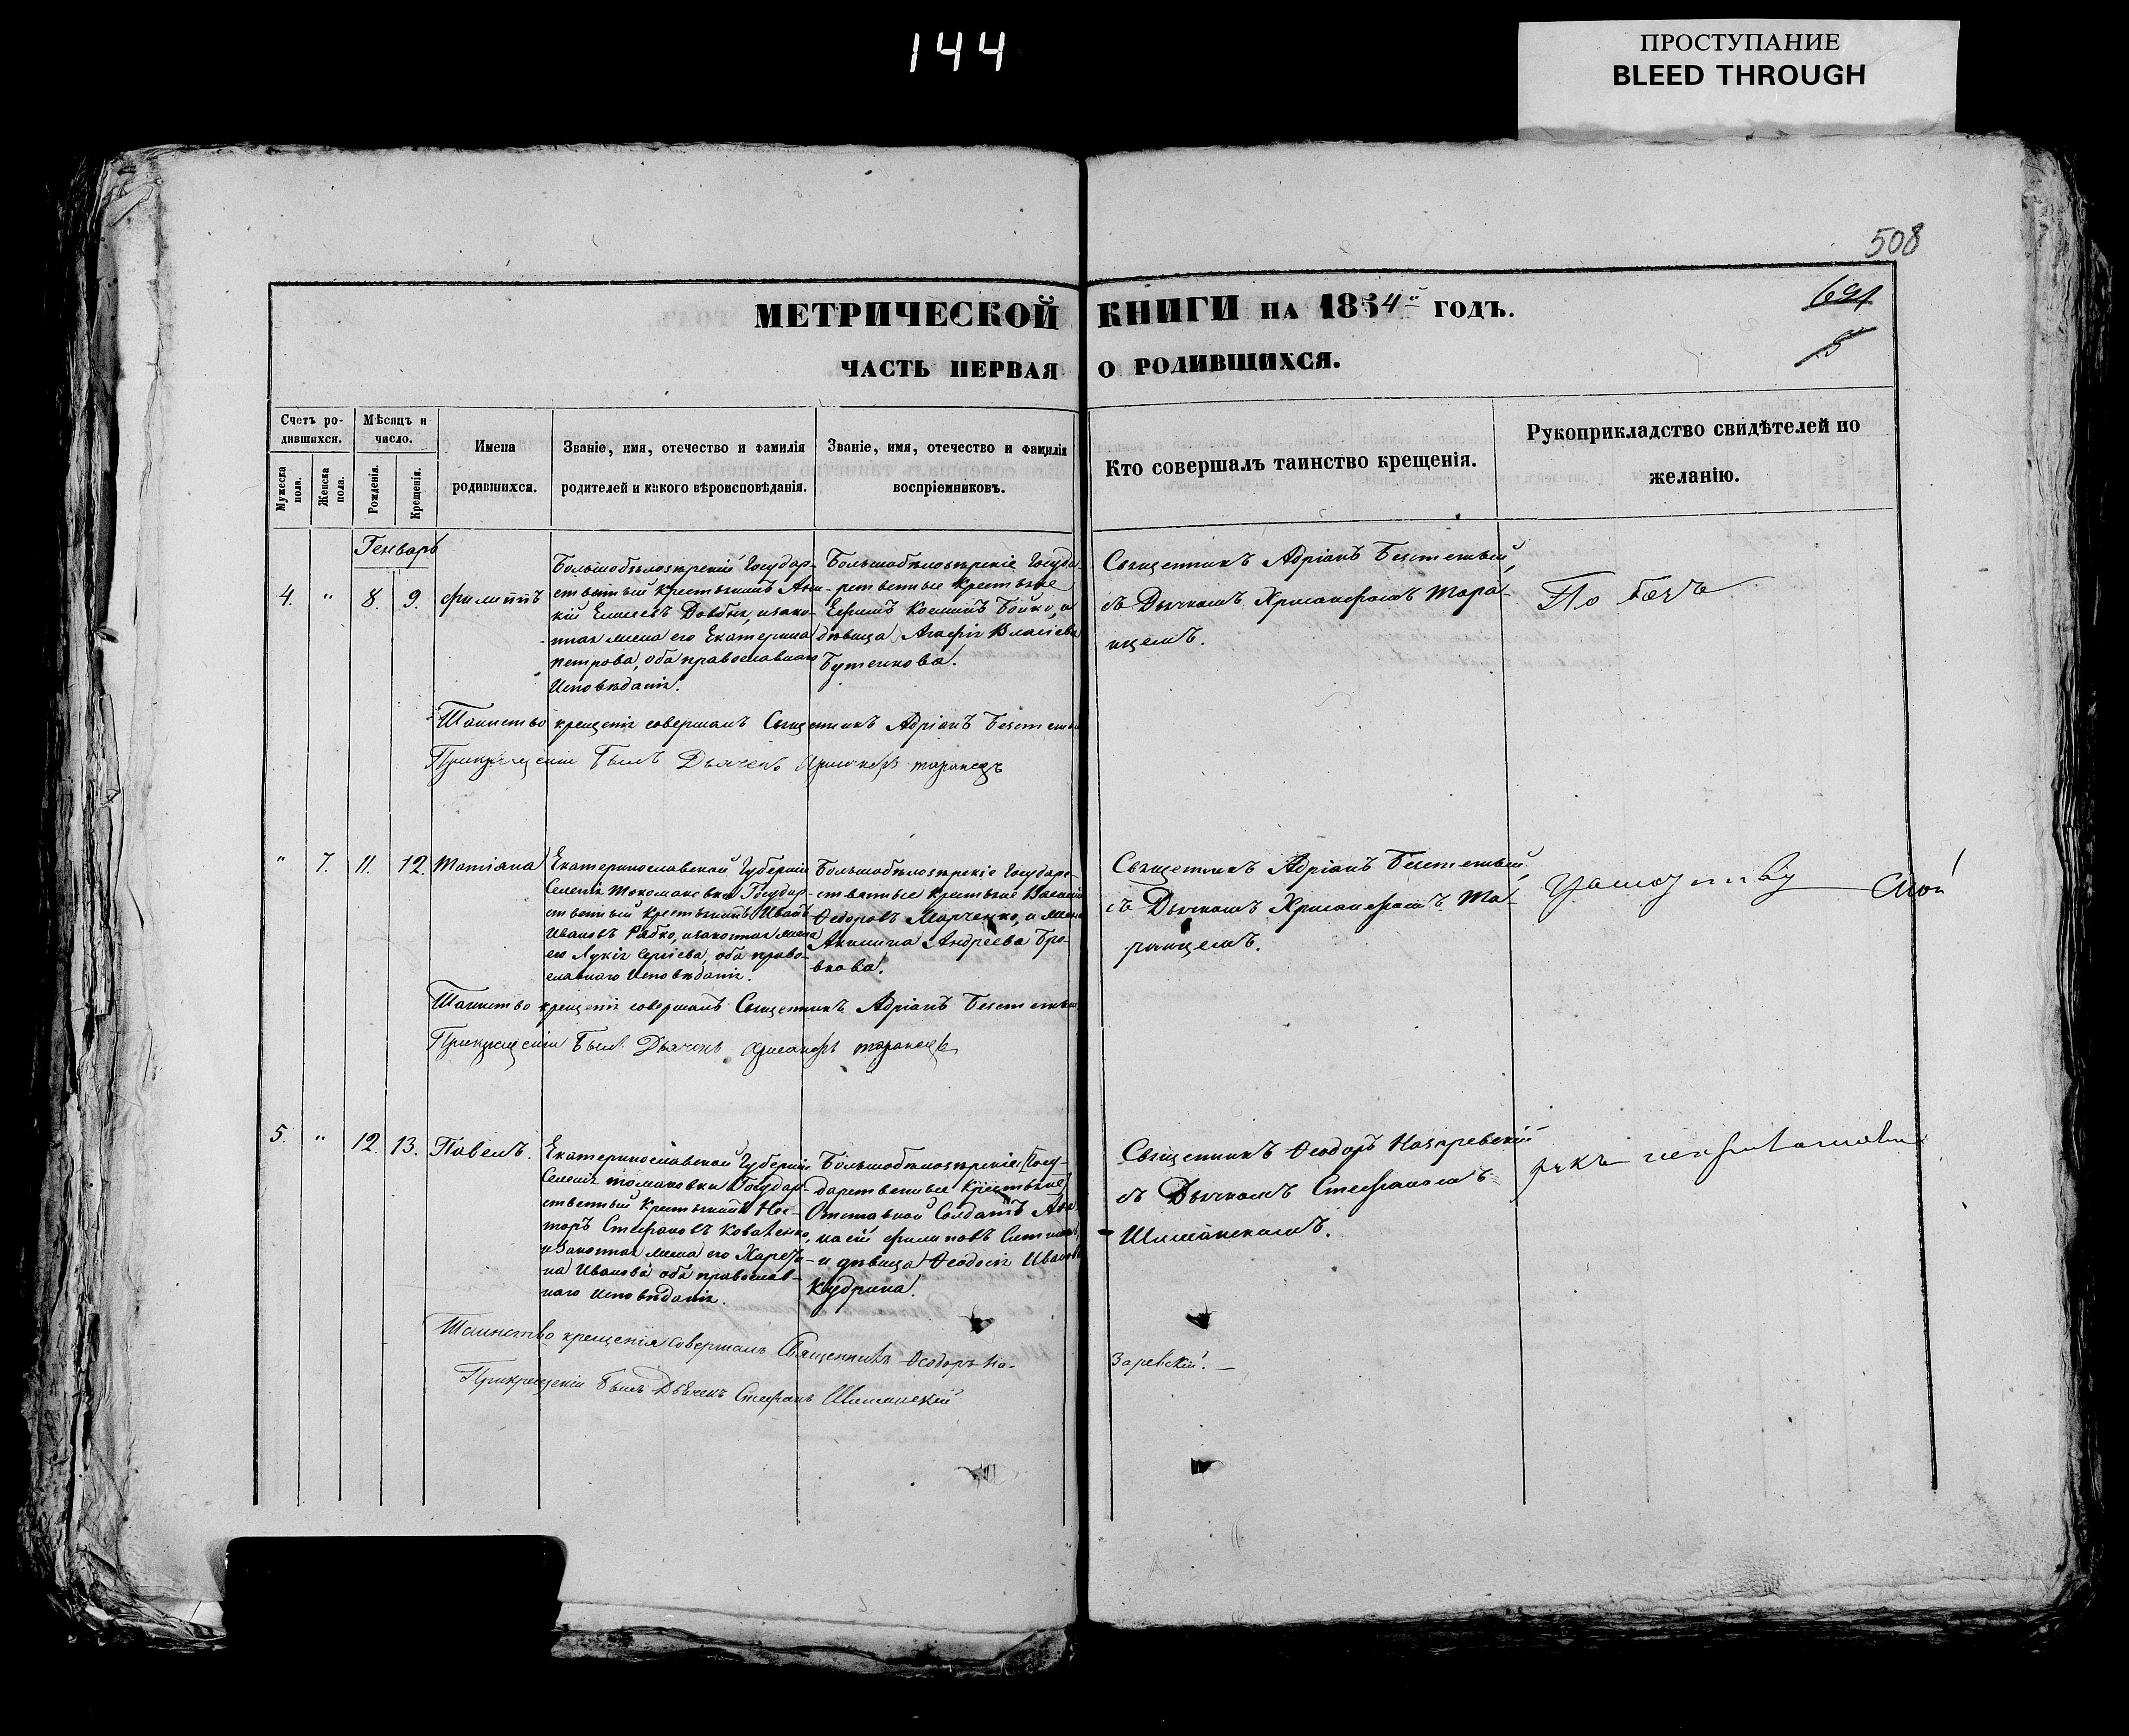 144
ПРОСТУПАНИЕ
BLEED THROUGH
508
МЕТРИЧЕСКОЙ КНИГИ НА 1854й ГОДЪ.
691
5
ЧАСТЬ ПЕРВАЯ О РОДИВШИХСЯ.
Счетъ ро-
дившихся.
Мужеска пола.
Женска пола.
Мѣсяцъ и
число.
Рожденія.
Крещенія.
Имена
родившихся.
Званіе, имя, отечество и фамилія
родителей и какого вѣроисповѣданія.
Званіе, имя, отечество и фамилія
воспріемниковъ.
Кто совершалъ таинство крещенія.
Рукоприкладство свидѣтелей по
желанію.
Генварь
4. " 8. 9. Филиппъ
Большобѣлозѣрскій Государ-
ственный крестьянинъ
кій Елисеевъ Довбня, изако-
нная жена его Екатерина
Петрова, оба православнаго
Исповѣданія.
Большобѣлозѣрскіе Госуда-
рственные крестьяне
Ефимъ Козминъ Бойко, и
дѣвица Агафія Власіева
Бутенкова.
Священникъ Адріанъ
съ Дьячкомъ Хрисанфомъ Тара-
нцемъ.
Таинство крещенія совершалъ Священникъ Адріанъ
Прикрещеніи былъ Дьячекъ Хрисанфъ Таранецъ
" 7. 11. 12. Татіана
Екатеринославской Губерніи
Селенія Токмаковки Государ-
ственный крестьянинъ Иванъ
Ивановъ Рябко, изаконная жена
его Лукія Сергіева, оба право-
славнаго Исповѣданія.
Большобѣлозѣрскіе Государ-
ственные крестьяне Василій
Федоровъ Марченко, и жена
Акилина Андреева Бро-
вкова.
Священникъ Адріанъ
съ Дьячкомъ Хрисанфомъ Та-
ранцемъ.
Таинство крещенія совершалъ Священникъ Адріанъ
Прикрещеніи былъ Дьячекъ Хрисанфъ Таранецъ
5. " 12. 13. Павелъ.
Екатеринославской Губерніи
Селенія Томаковки Государ-
ственный крестьянинъ Нес-
торъ Стефановъ Коваленко,
изаконная жена его Харети-
на Иванова оба православ-
наго исповѣданія.
Большобѣлозѣрскіе Госу-
дарственные крестьяне
Отставной Солдатъ
насій Филиповъ
и дѣвица Феодосія Иванова
Кудрина.
Священникъ Феодоръ Назаревскій
съ Дьячкомъ Стефаномъ
Шиманскимъ.
Таинство крещенія совершалъ Священникъ Феодоръ На-
заревскій.
Прикрещеніи былъ Дьячекъ Стефанъ Шиманскій